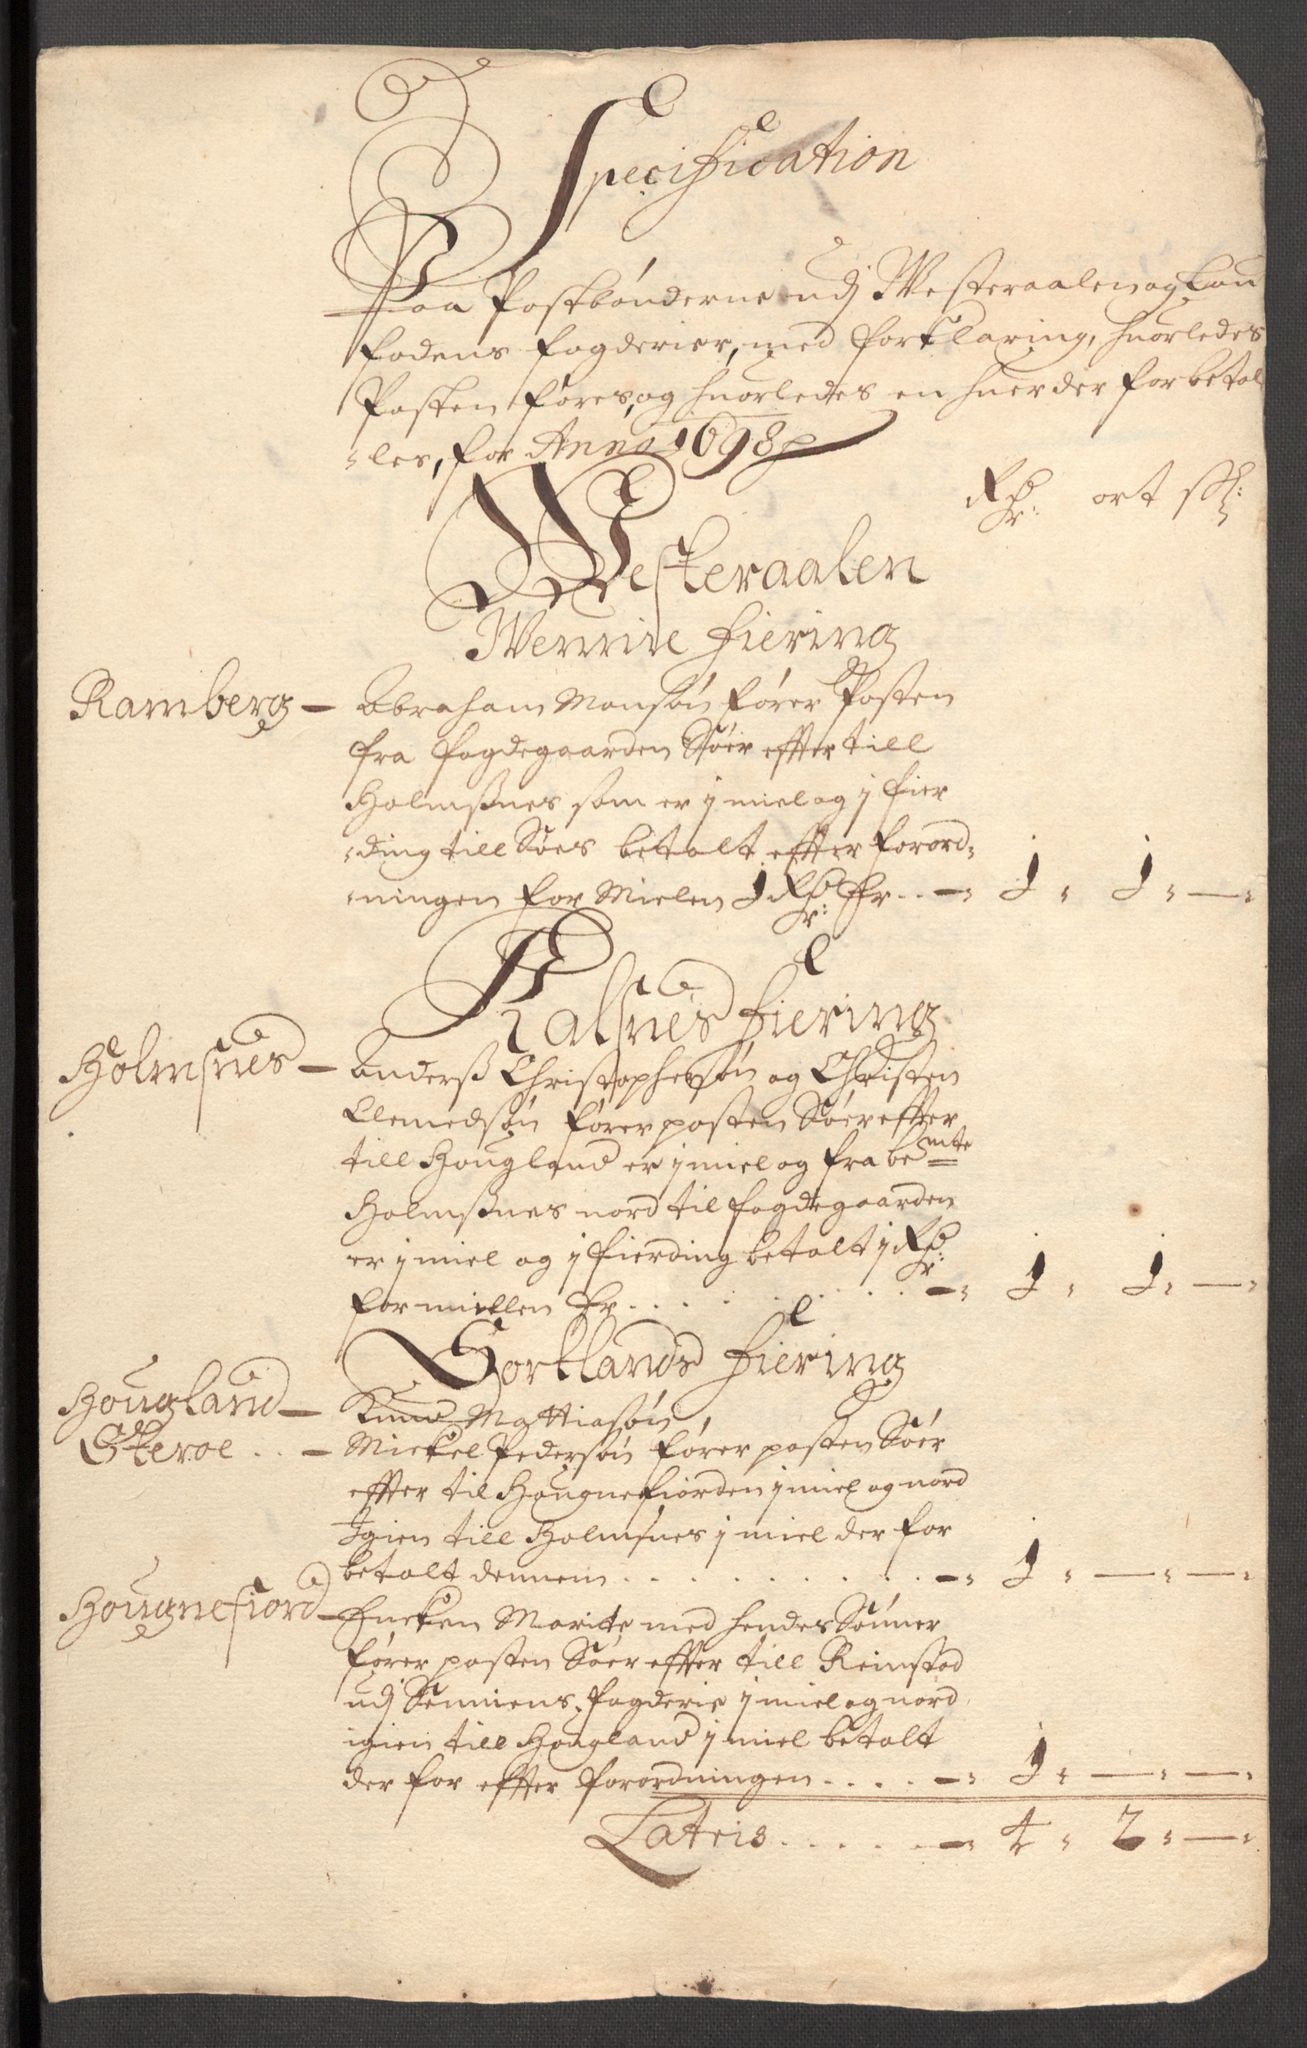 Specification
Paa Postbønderne udj Westeraalen og Lou
fodens fogderier, med forklaring, huorledes
Posten føres, og huorledes en huer der for betal
les, for Anno 1698
Rdr: ort sk:
Westeraalen
Wennie fiering
Ramberg — Abraham Monsøn fører Posten
fra fogdegaarden Søer effter till
Holmsnes som er j miel og j fier
ding till Søes betalt effter forord
ningen for Mielen 1 Rdr: Er .. — 1 " 1 " — "
Kalsnes fiering
Holmsnes — Anderß Christophersøn og Christen
Clemedsøn fører posten Søer effter
till Hougland er j miel og fra bemte
Holmsnes nord til fogdegaarden
er j miel og j fierding betalt j Rdr:
for miellen Er . . . . — 1 " 1 " — "
Sortlands fiering
Hougland — Knud Mattiasøn,
Steroe .. — Mickel Pedersøn fører posten Søer
effter til Hougnefiorden j miel og nord
Igien till Holmsnes j miel der for
betalt dennem . . . . — 1 " — " — "
Hougnefiord — Encken Maritte med hendes Sønner
fører posten Søer effter till Reinstad
udj Senniens fogderie j miel og nord
igien till Hougland j miel betalt
der for effter forordningen . . . . — 1 " — " — "
Lateris . . . . . — 4 " 2 " — "